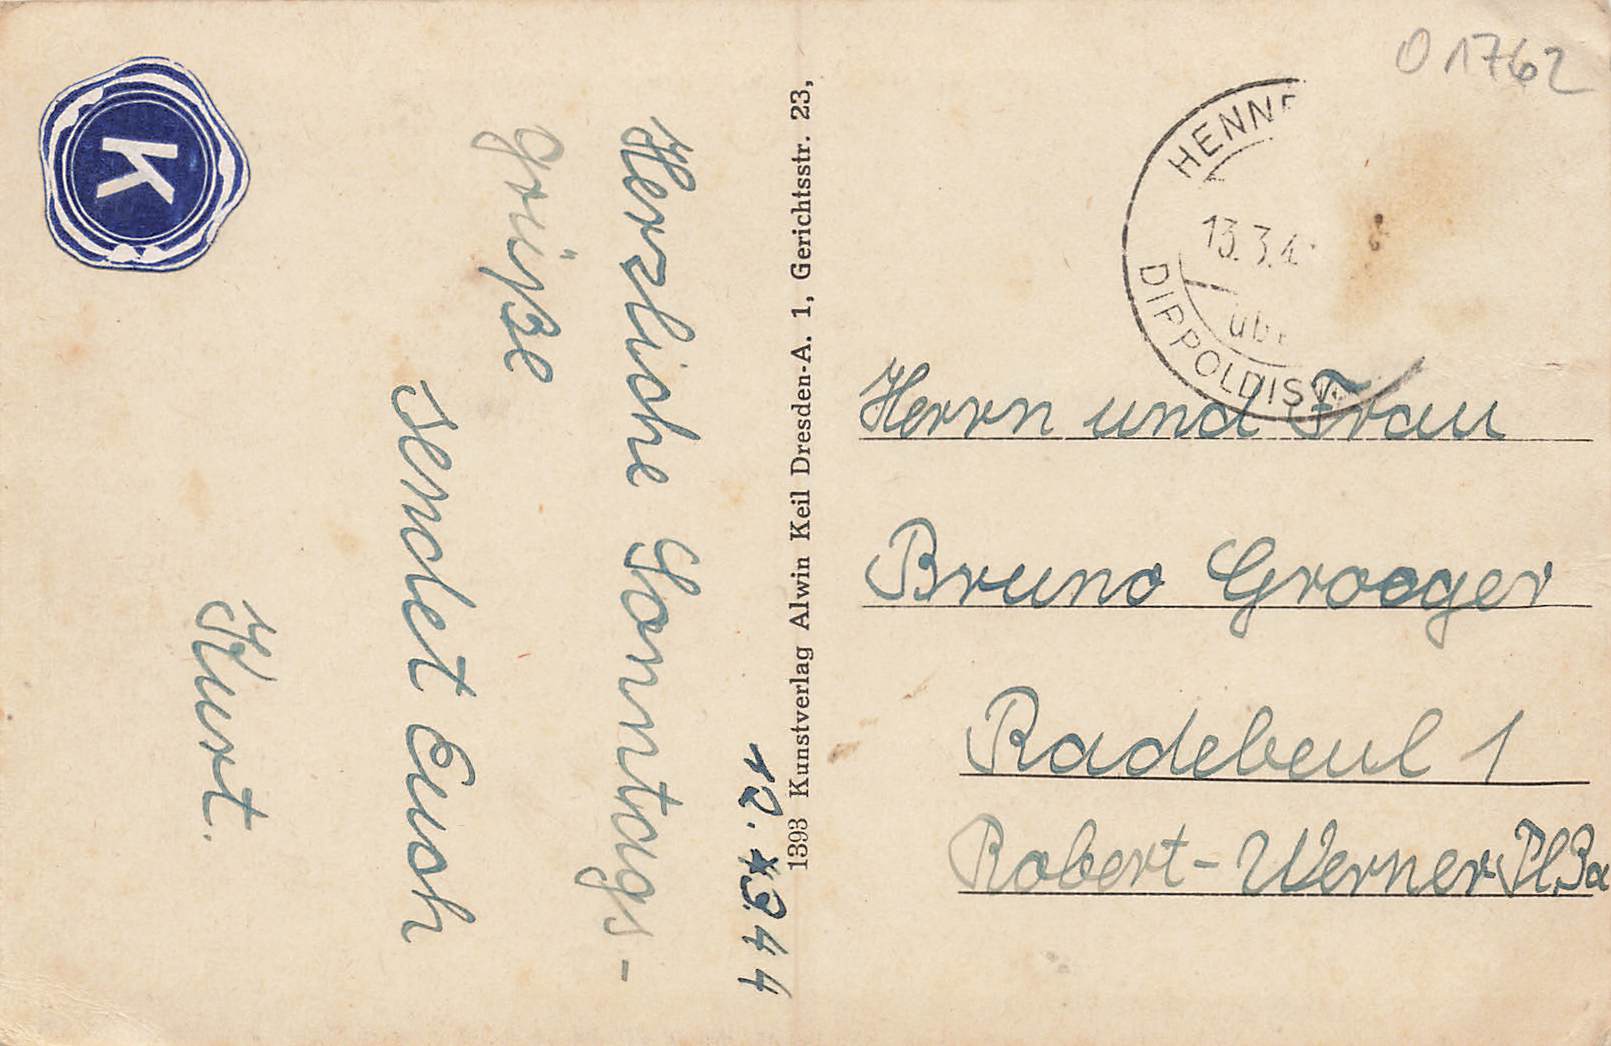 O 1762
HENNE
13.3.4
üb
DIPPOLDISW
K
12. 3.44
Herzliche Sonntags-
grüße
sendet Euch
Kurt.
1393 Kunstverlag Alwin Keil Dresden-A. 1, Gerichtsstr. 23,
Herrn und Frau
Bruno Groeger
Radebeul 1
Robert-Werner Pl.